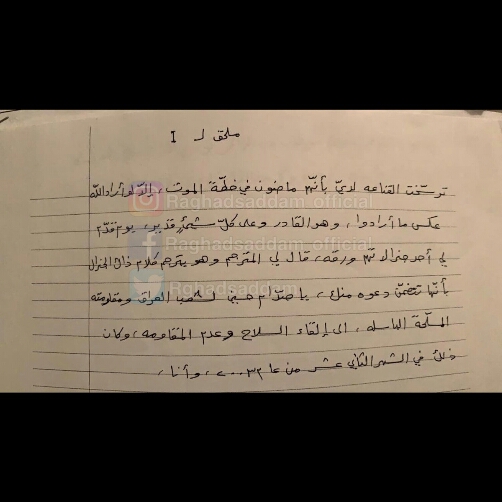 ملحق لـ I
ترسّخت القناعه لديّ بأنّهم ماضون في خطّة الموت، إلّا لو أراد الله
عكس ما أرادوا، وهو القادر وعلى كلّ شيءٍ قدير، يوم قدّم
لي أحد جنرالاتهم ورقه، قال لي المترجم وهو يترجم كلام ذاك الجنرال
بأنّها تتضمّن دعوه منك، يا صدّام حسين لشعب العراق ومقاومته
المسلّحة الباسله، الى إلقاء السلاح وعدم المقاومه، وكان
ذلك في الشهر الثاني عشر من عام ٢٠٠٣، وأنا،
Raghadsaddam_official
Raghadsaddam_official
Raghadsaddam_official